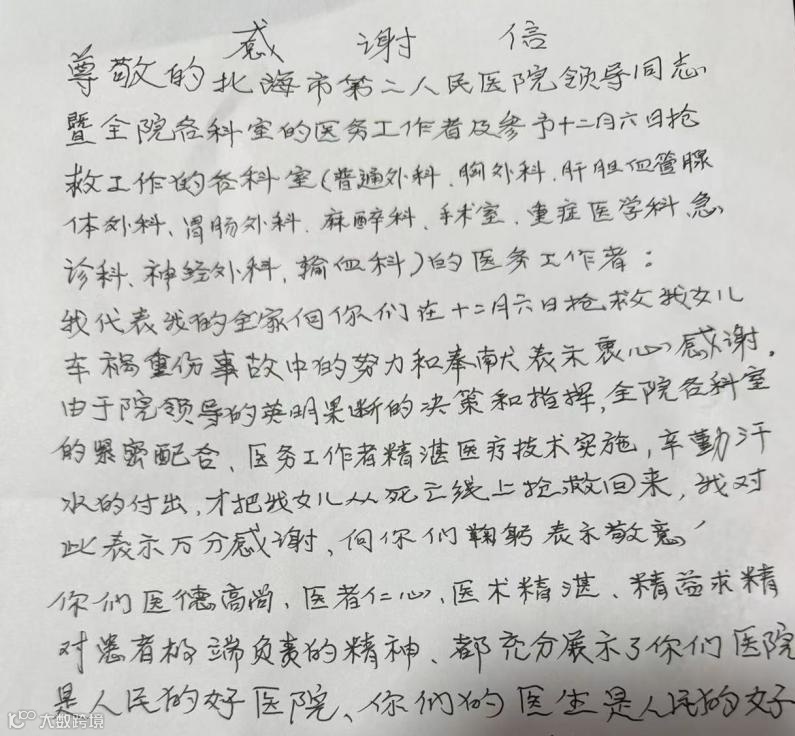 感谢信
尊敬的北海市第二人民医院领导同志
暨全院各科室的医务工作者及参予十二月六日抢
救工作的各科室(普通外科、胸外科、肝胆血管腺
体外科、胃肠外科、麻醉科、手术室、重症医学科、急
诊科、神经外科、输血科)的医务工作者:
我代表我的全家向你们在十二月六日抢救我女儿
车祸重伤事故中的努力和奉献表示衷心感谢。
由于院领导的英明果断的决策和指挥,全院各科室
的紧密配合、医务工作者精湛医疗技术实施,辛勤汗
水的付出,才把我女儿从死亡线上抢救回来,我对
此表示万分感谢、向你们鞠躬表示敬意!
你们医德高尚、医者仁心、医术精湛、精益求精
对患者极端负责的精神、都充分展示了你们医院
是人民的好医院、你们的医生是人民的好
大数跨境